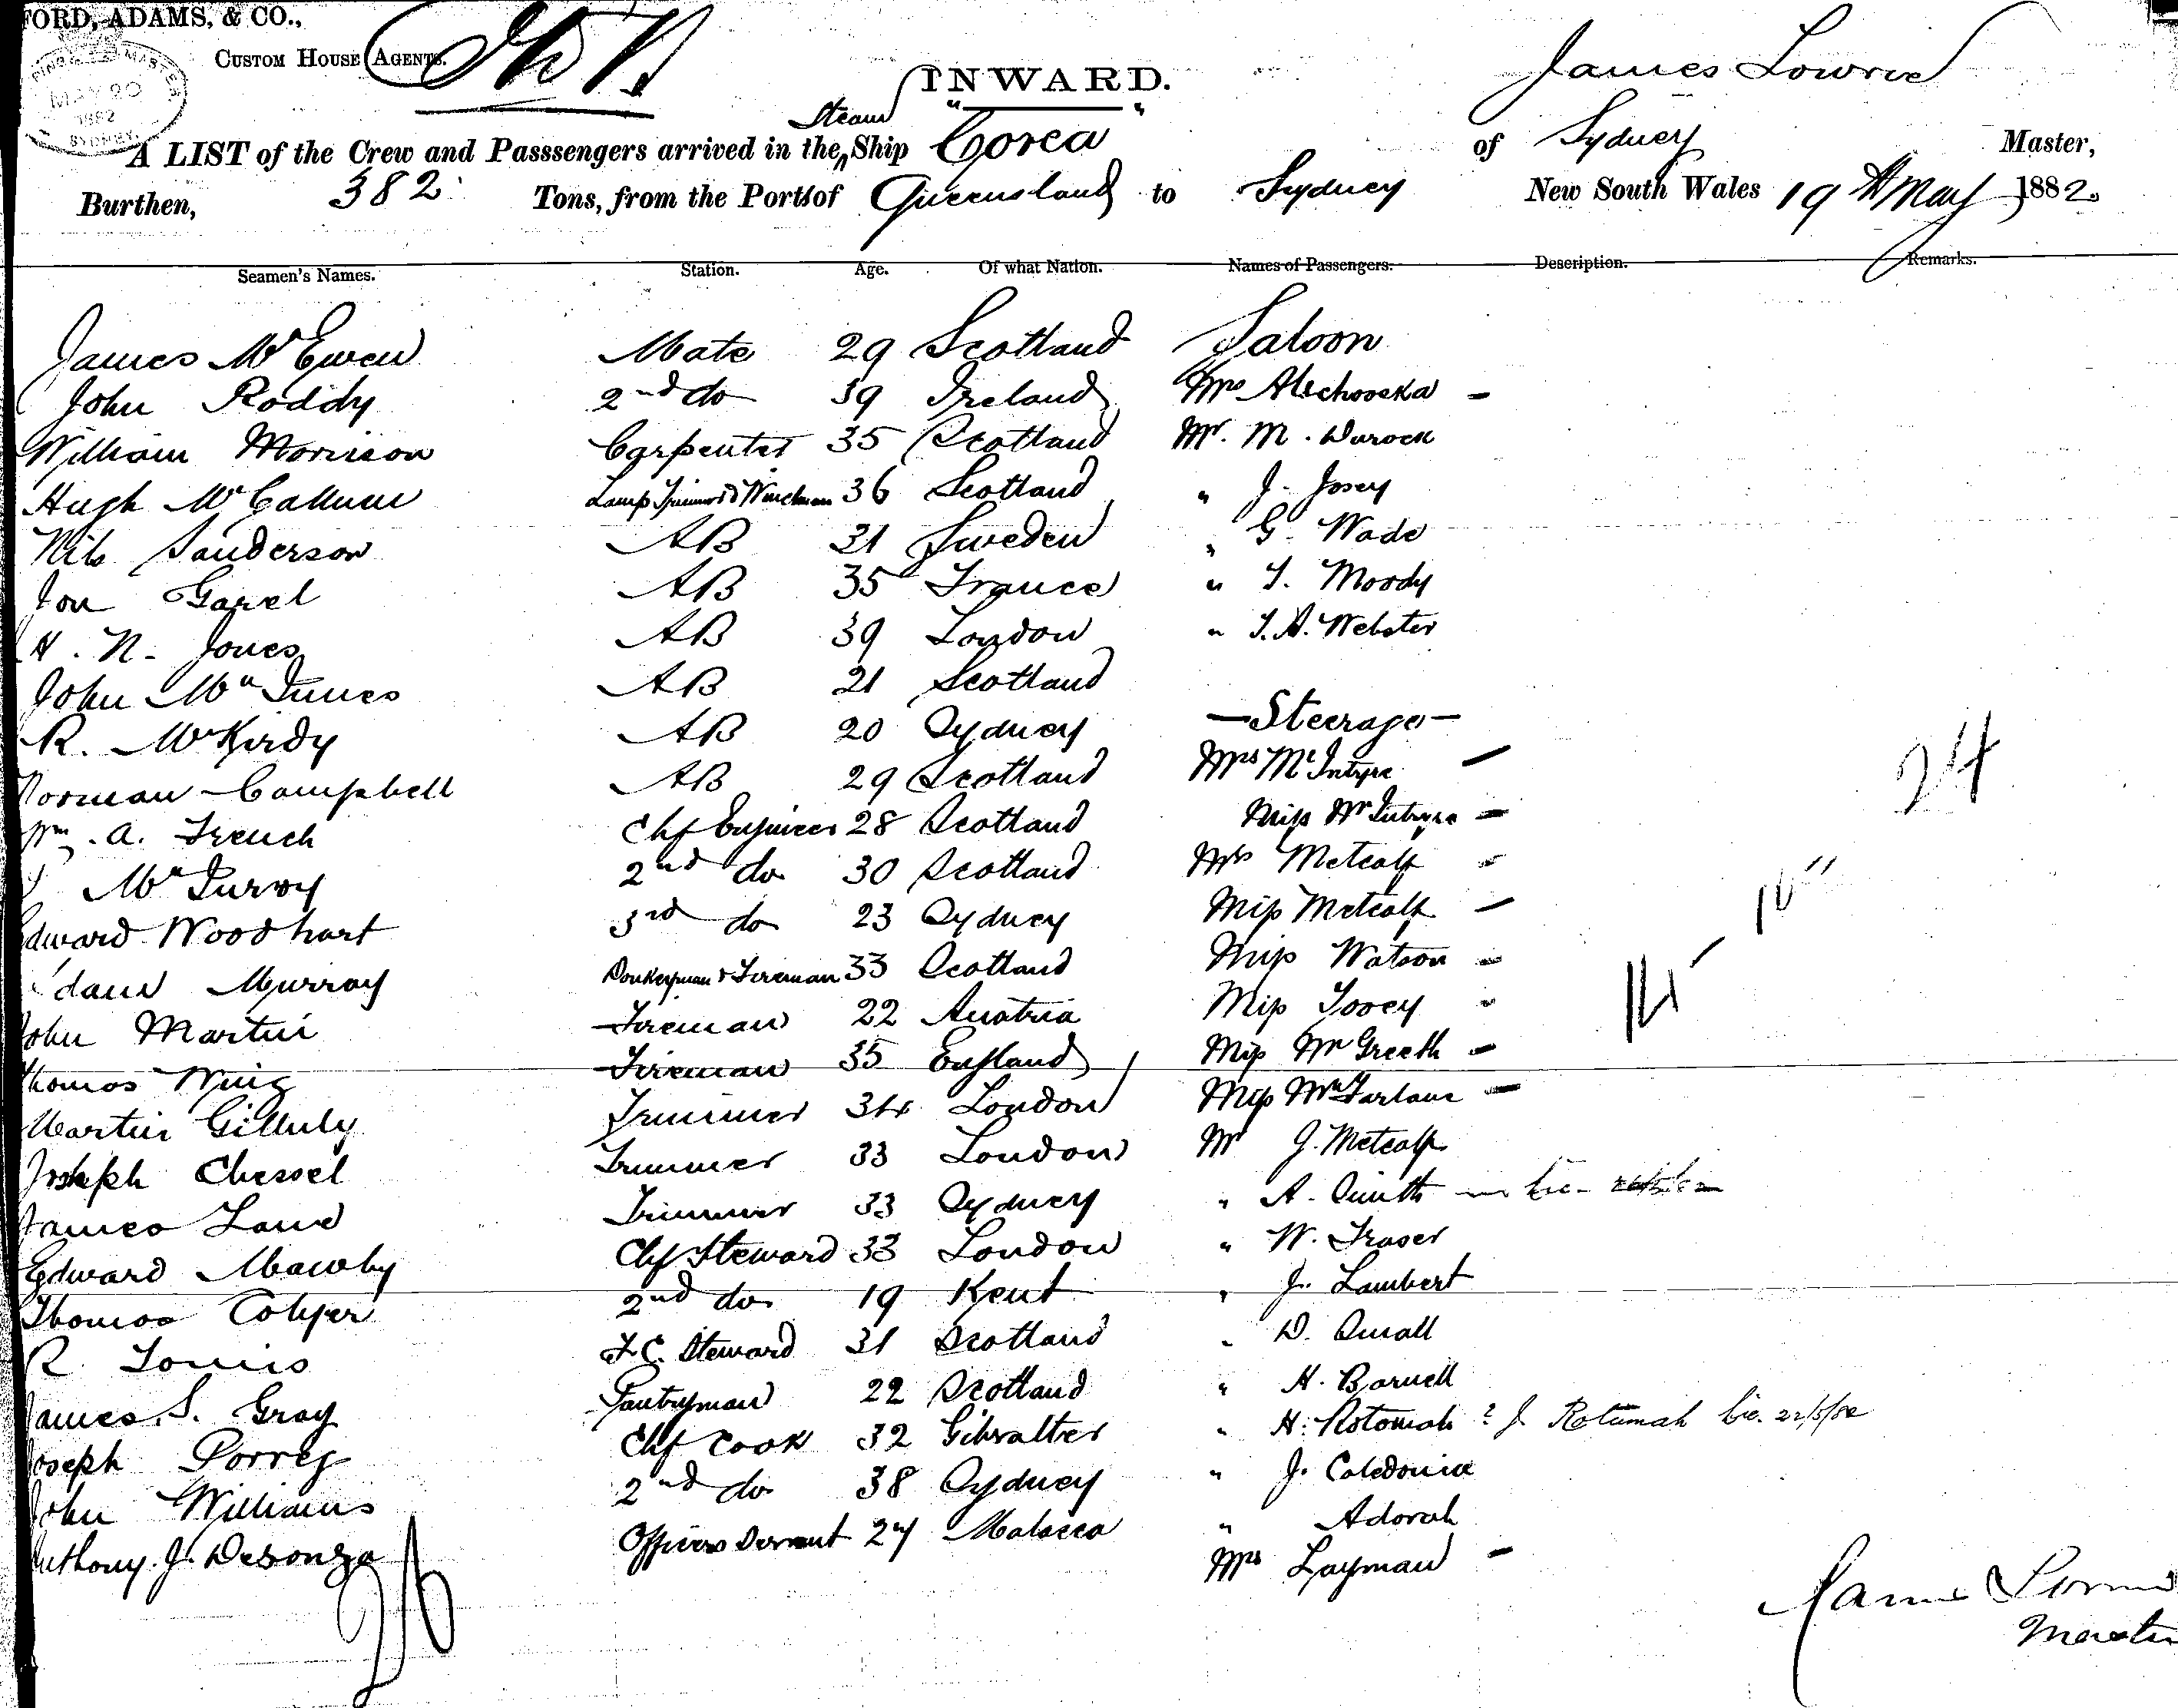 FORD, ADAMS, & CO.,
CUSTOM HOUSE AGENTS.
MAY 20
1882
SYDNEY
INWARD.
James Lowrie
A LIST of the Crew and Passsengers arrived in the Steam Ship "Corea" of Sydney Master,
Burthen, 382 Tons, from the Ports of Queensland to Sydney New South Wales 19th May 1882.
Seamen's Names. Station. Age. Of what Nation. Names of Passengers. Description. Remarks.
James McEwen Mate 29 Scotland Saloon
John Roddy 2nd do 39 Ireland Mrs
William Morrison Carpenter 35 Scotland Mr. M.
Hugh McCallum Lamp Trimmer & Winchman 36 Scotland " J. Josey
Nils Sanderson AB 31 Sweden " G. Wade
Jon Garel AB 35 France " T. Moody
H. N. Jones AB 39 London " T. A. Webster
John McInnes AB 21 Scotland
R. McKirdy AB 20 Sydney — Steerage —
Norman Campbell AB 29 Scotland Mrs McIntyre —
Wm. A. French Chf Engineer 28 Scotland Miss McIntyre —
McTurvy 2nd do 30 Scotland Mrs Metcalf
Edward Woodhart 3rd do 23 Sydney Miss Metcalf —
Murray Donkeyman & Fireman 33 Scotland Miss Watson —
John Martin Fireman 22 Austria Miss Tovey
Thomas Wing Fireman 35 England Miss McGreeth —
Martin Gilluly Trimmer 34 London Miss McFarlane —
Joseph Chessel Trimmer 33 London Mr J. Metcalf
James Lane Trimmer 33 Sydney " A. Smith
Edward Mawby Chf Steward 33 London " W. Fraser
Thomas Cohper 2nd do 19 Kent " J. Lambert
R. Louis F.C. Steward 31 Scotland " D. Small
James S. Gray Pantryman 22 Scotland " H. Barnell
Joseph Porrez Chf Cook 32 Gibralter " H. Rotomah ? J. Rotumah lic. 22/5/82
John Williams 2nd do 38 Sydney " J. Caledonia
Anthony J. Desouza Officers Servant 24 Malacca " Adorah
Mrs Layman —
24
10"
14
26
James Lowrie
Master